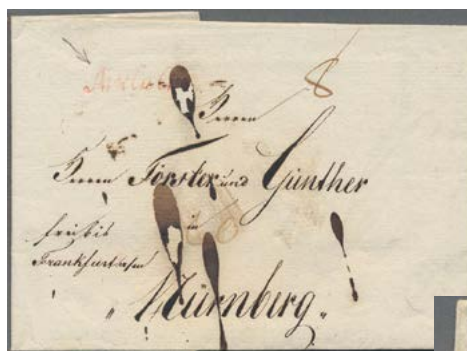 8
Herrn
Herrn Förster und Günther
in
frei bis
Frankfurt
„Nürnberg„